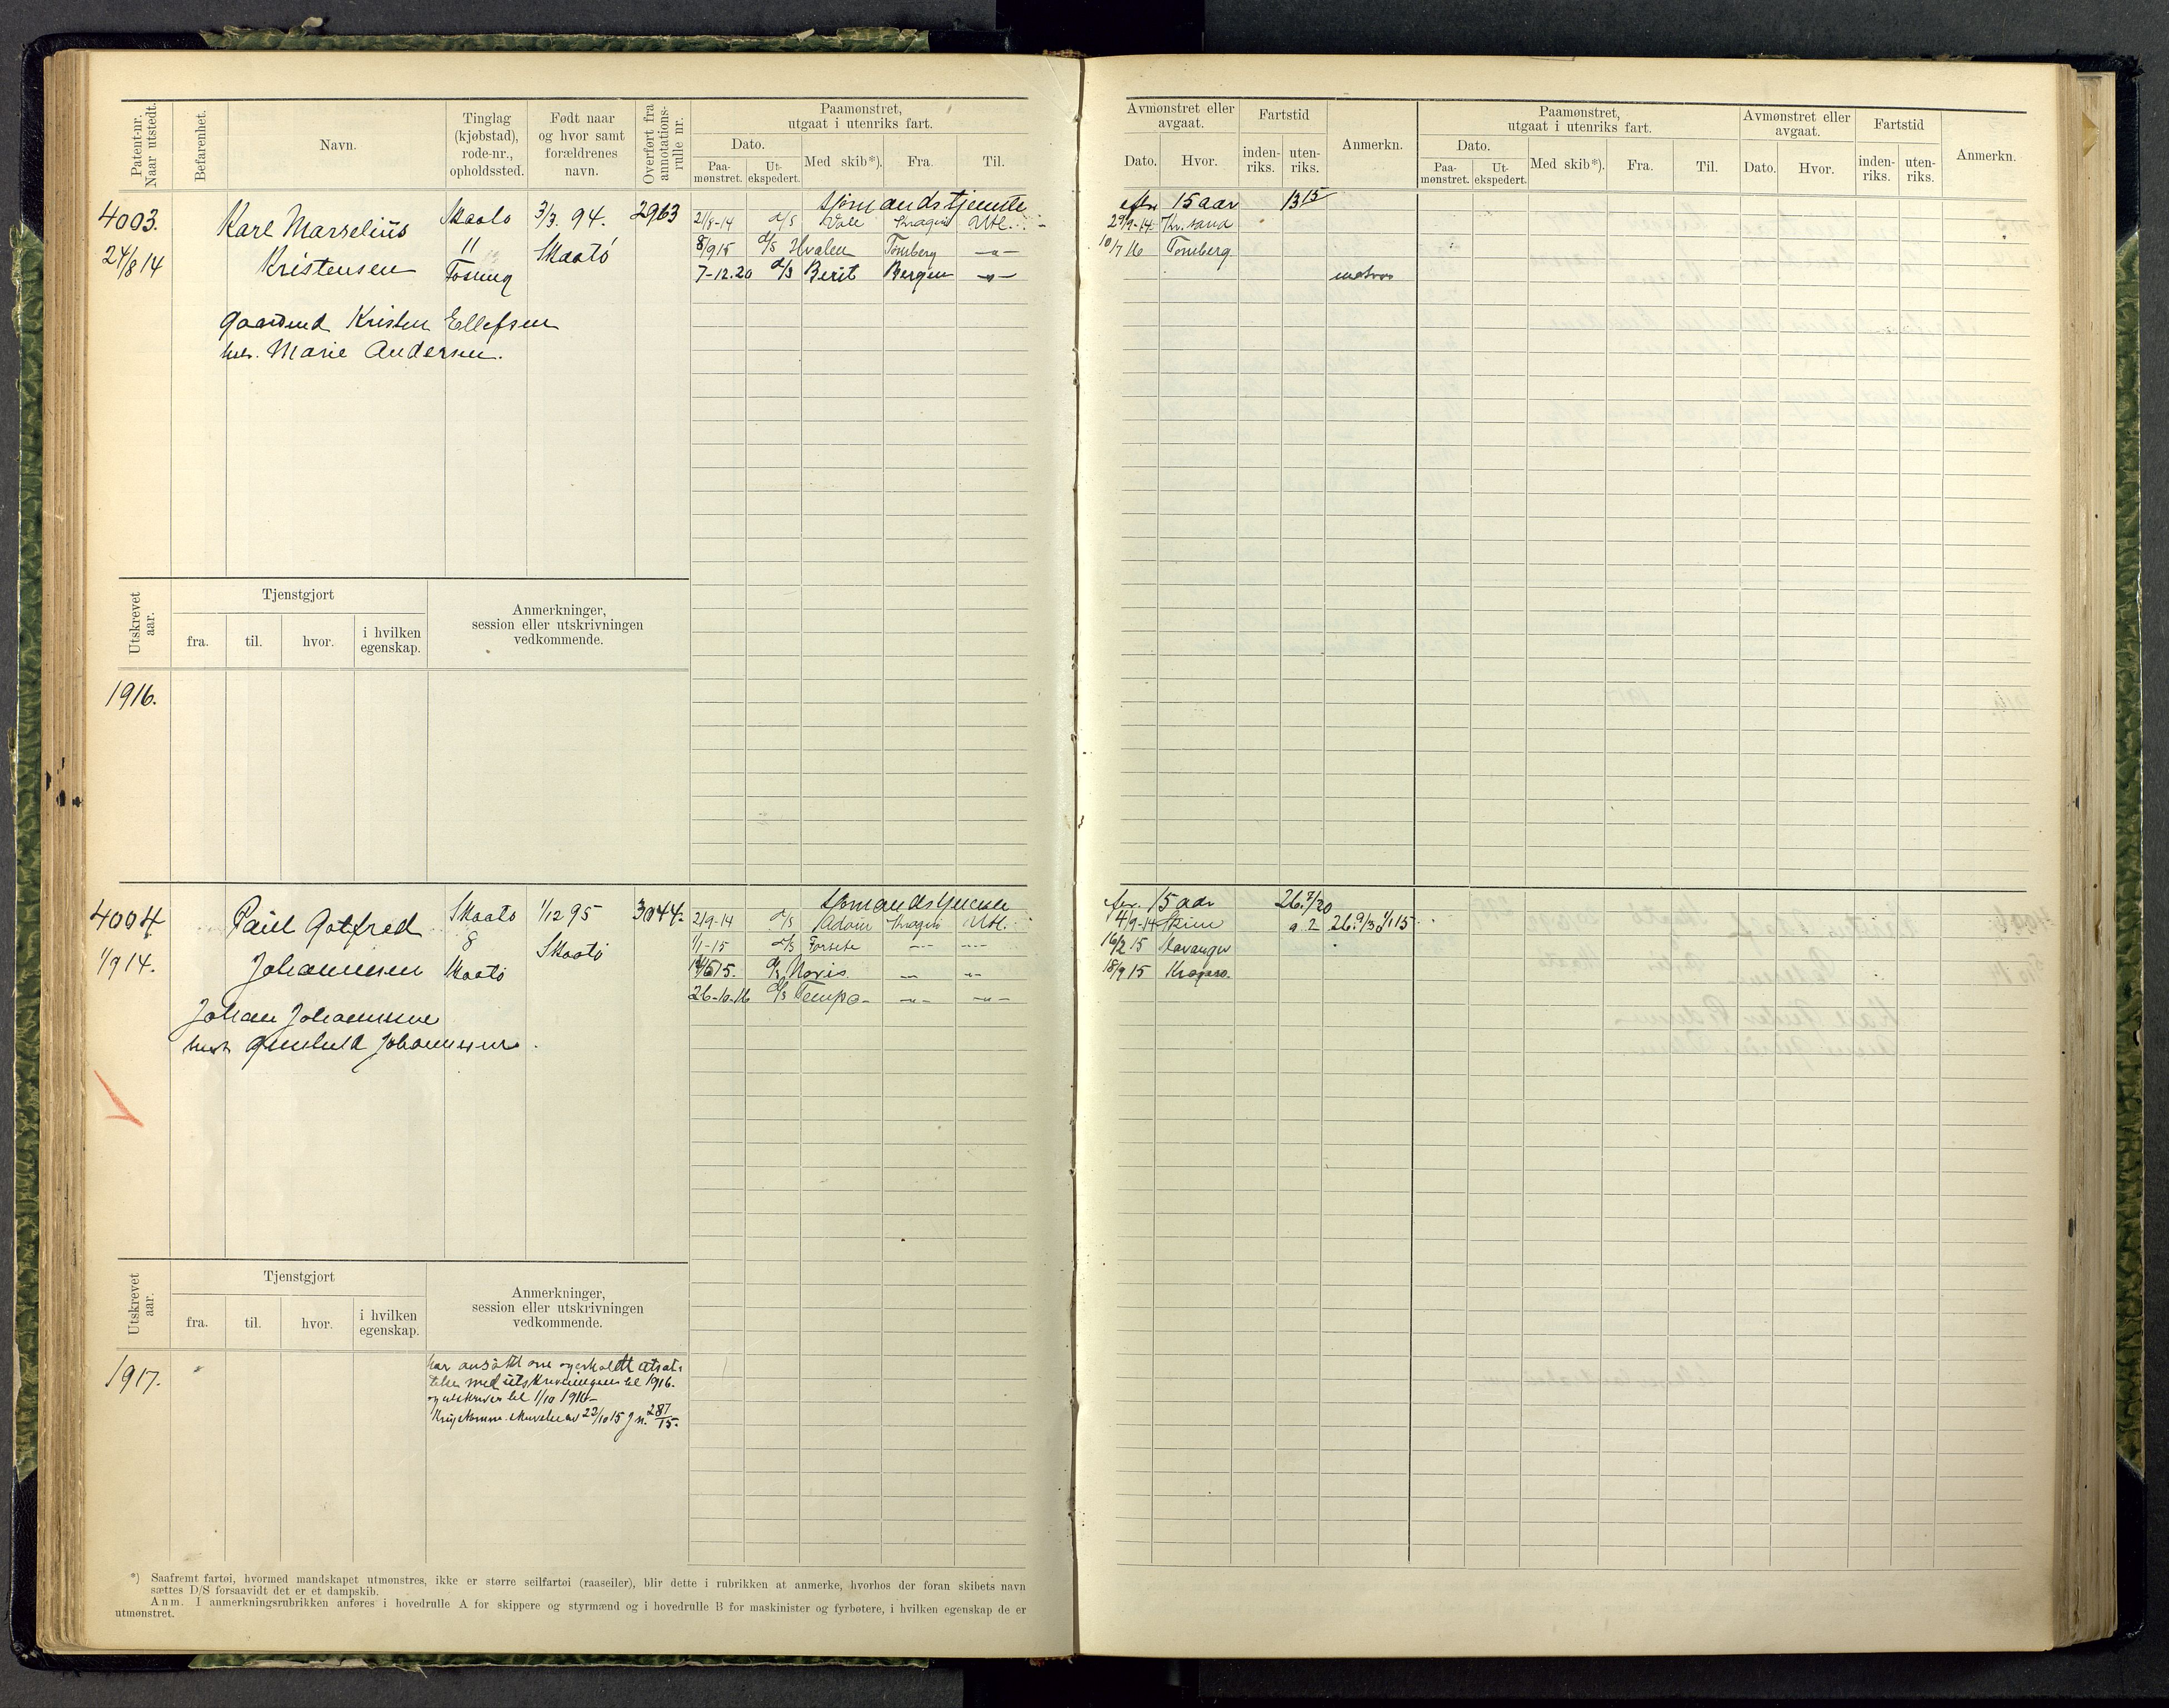 Patent-nr. Naar utstedt.
Befarenhet.
Navn.
Tinglag (kjøbstad), rode-nr., opholdssted.
Født naar og hvor samt forældrenes navn.
Overført fra annotations-rulle nr.
Paamønstret, utgaat i utenriks fart.
Dato.
Paa-mønstret.
Ut-ekspedert.
Med skib*).
Fra.
Til.
Avmønstret eller avgaat.
Dato.
Hvor.
Fartstid
inden-riks.
uten-riks.
Anmerkn.
Paamønstret, utgaat i utenriks fart.
Dato.
Paa-mønstret.
Ut-ekspedert.
Med skib*).
Fra.
Til.
Avmønstret eller avgaat.
Dato.
Hvor.
Fartstid
inden-riks.
uten-riks.
Anmerkn.
sjømandstjeneste efter 15 aar 13 15
4003. Karl Marselius Skaatø 3/3. 94. 2963
21/8-14 d/s Vale Kragerø Utl. 29/9-14 Kr.sand
24/8 14 Kristensen 11 Fossing Skaatø
8/9 15 d/s Hvalen Tønsberg -"- 10/7 16 Tønsberg
7-12.20 d/s Berit Bergen -"- matros
Gaardmd Kristen Ellefsen
hus. Marie Andersen.
Utskrevet aar.
Tjenstgjort
fra.
til.
hvor.
i hvilken egenskap.
Anmerkninger, session eller utskrivningen vedkommende.
1916.
sjømandstjeneste 15 aar 26.7/20
4004 Paul Gotfred Skaatø 1/12 95 3044
2/9-14 d/s Kragerø Utl. 14/9-14 Skien
1/9 14. Johannesen 8 Skaatø Skaatø
1/1-15 d/s Forsete -"- -"- 16/2 15 Stavanger
15. d/s Noris -"- -"- 18/9 15 Kragerø.
26-10-16 d/s Tempo -"- -"-
Johan Johannesen
hust Gunhild Johannesen.
Utskrevet aar.
Tjenstgjort
fra.
til.
hvor.
i hvilken egenskap.
Anmerkninger, session eller utskrivningen vedkommende.
1917. har ansøkt om og erholdt utsæt-
telse med utskrivningen til 1916.
og utskrives til 1/10 1916-
skrivelse av 22/10 15 J n. 287/15.
*) Saafremt fartøi, hvormed mandskapet utmønstres, ikke er større seilfartøi (raaseiler), blir dette i rubrikken at anmerke, hvorhos der foran skibets navn
sættes D/S forsaavidt det er et dampskib.
Anm. I anmerkningsrubrikken anføres i hovedrulle A for skippere og styrmænd og i hovedrulle B for maskinister og fyrbøtere, i hvilken egenskap de er
utmønstret.